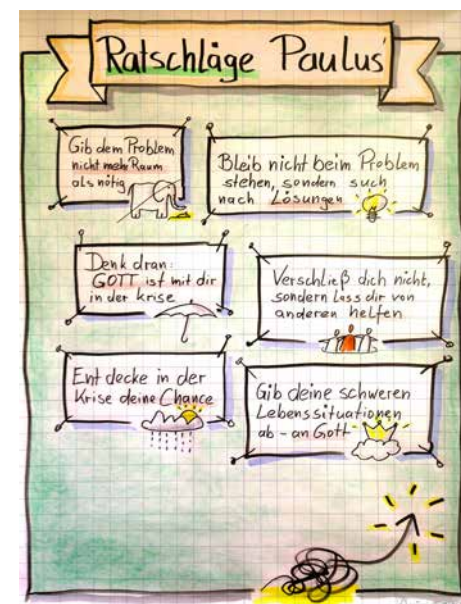 Ratschläge Paulus'
Gib dem Problem
nicht mehr Raum
als nötig
Bleib nicht beim Problem
stehen, sondern such
nach Lösungen
Denk dran:
GOTT ist mit dir
in der Krise
Verschließ dich nicht,
sondern lass dir von
anderen helfen
Entdecke in der
Krise deine Chance
Gib deine schweren
Lebenssituationen
ab - an Gott